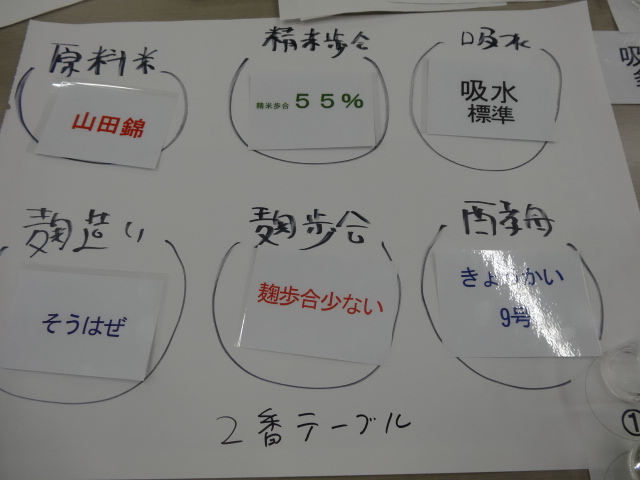 原料米
精米歩合
吸水
山田錦
精米歩合 55%
吸水
標準
麹造り
麹歩合
酵母
そうはぜ
麹歩合少ない
きょうかい
9号
2番テーブル
吸
①